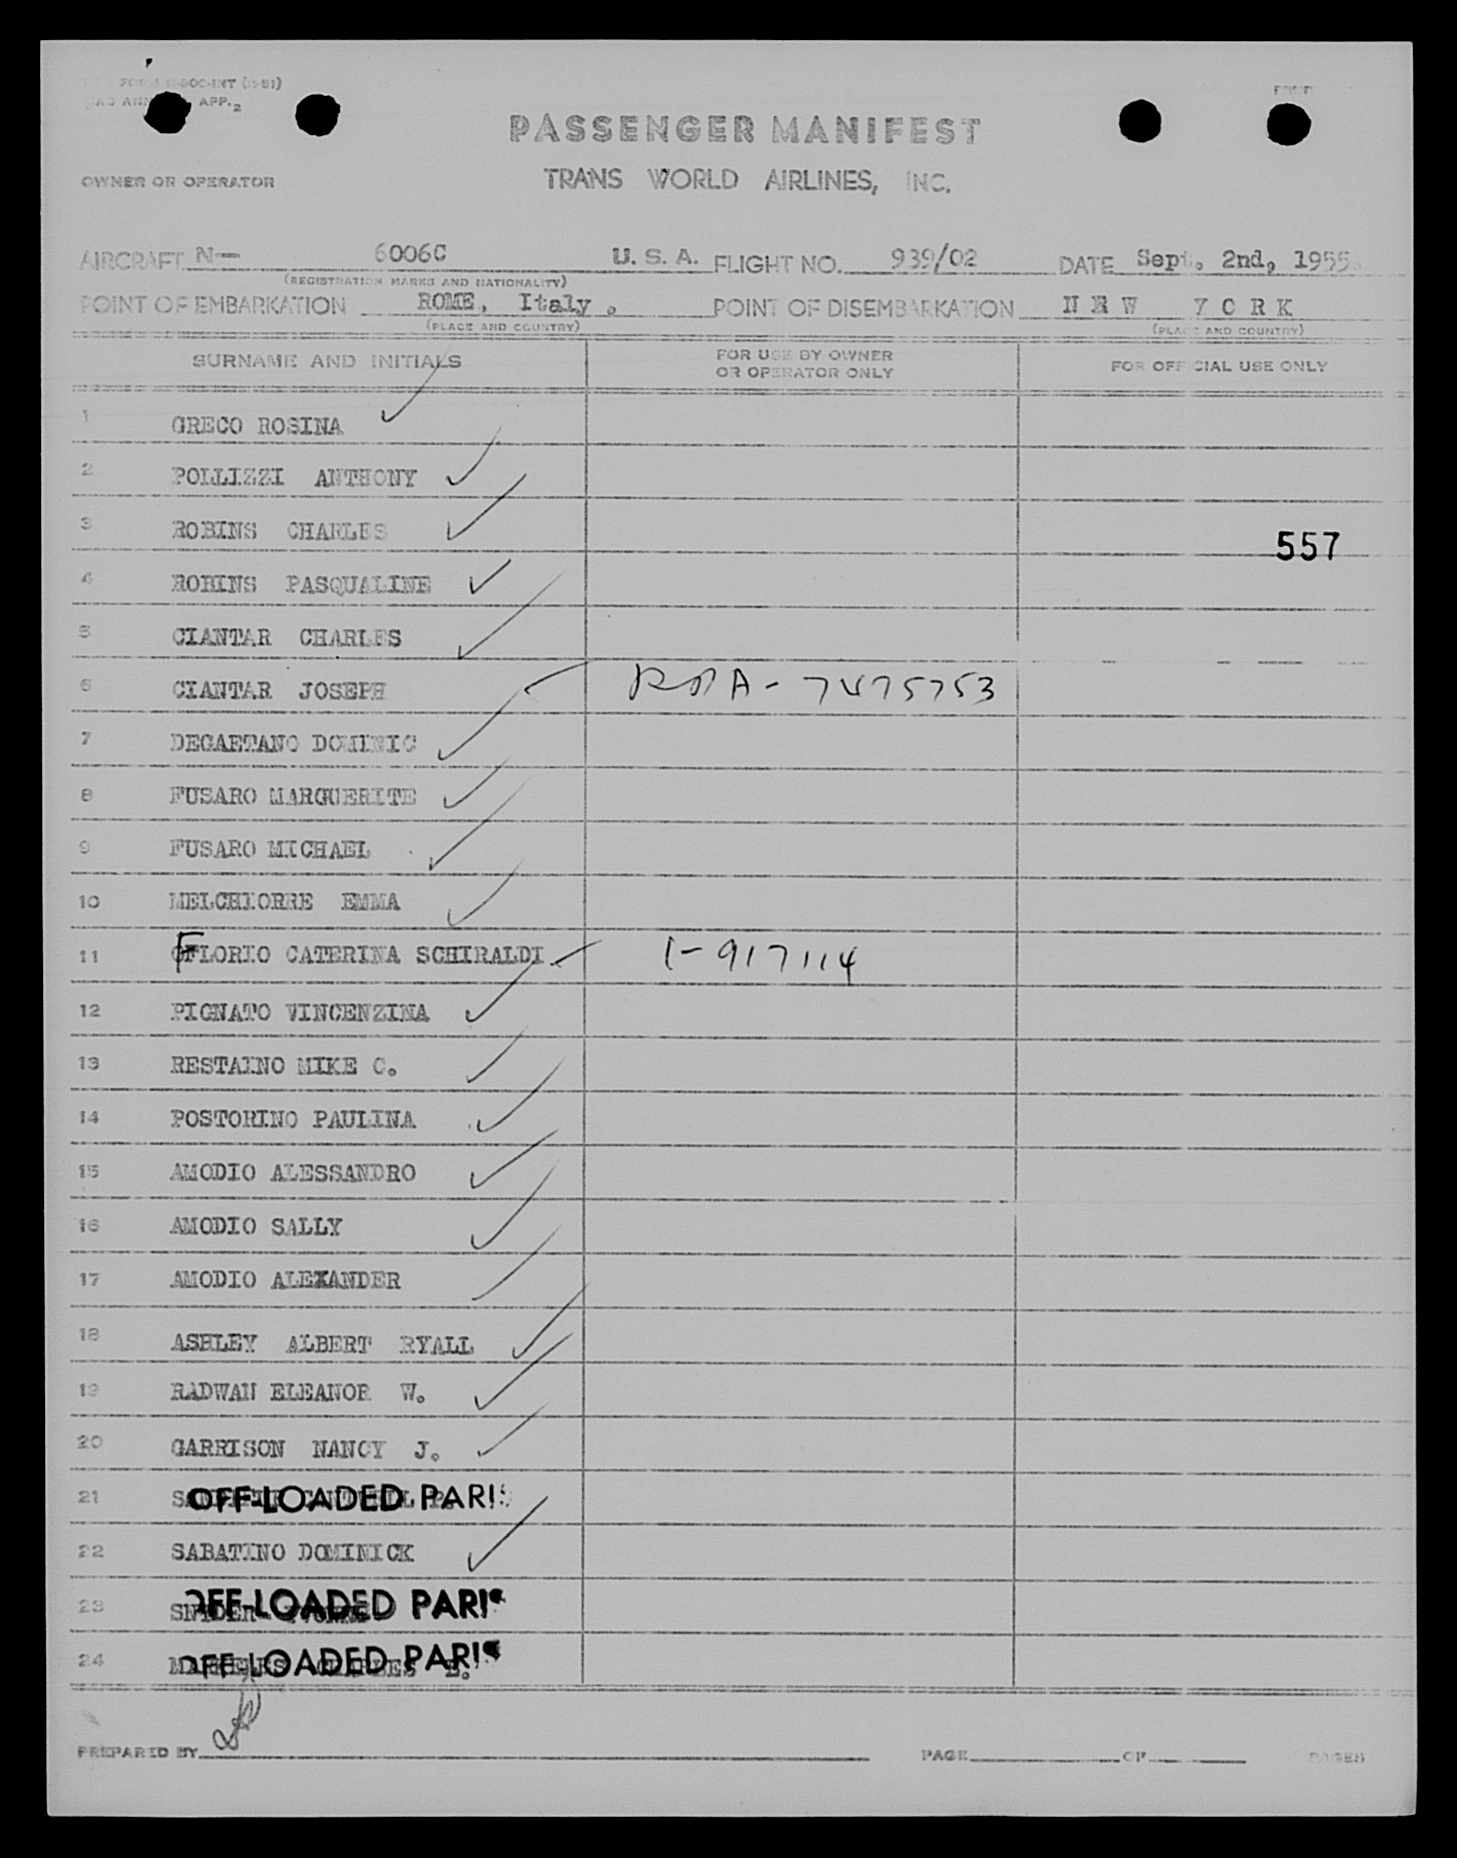 APP. 2
PASSENGER MANIFEST
OWNER OR OPERATOR
TRANS WORLD AIRLINES, INC.
AIRCRAFT N— 6006C U. S. A. FLIGHT NO. 939/02 DATE Sept. 2nd, 1955.
(REGISTRATION MARKS AND NATIONALITY)
POINT OF EMBARKATION ROME, Italy . POINT OF DISEMBARKATION N E W Y O R K
(PLACE AND COUNTRY) (PLACE AND COUNTRY)
SURNAME AND INITIALS FOR USE BY OWNER OR OPERATOR ONLY FOR OFFICIAL USE ONLY
1 GRECO ROSINA
2 POLLIZZI ANTHONY
3 ROBINS CHARLES 557
4 ROBINS PASQUALINE
5 CIANTAR CHARLES
6 CIANTAR JOSEPH - 7475753
7 DEGAETANO DOMINIC
8 FUSARO MARGUERITE
9 FUSARO MICHAEL
10 MELCHIORRE EMMA
11 FLORIO CATERINA SCHIRALDI 1-917114
12 PIGNATO VINCENZINA
13 RESTAINO MIKE C.
14 POSTORINO PAULINA
15 AMODIO ALESSANDRO
16 AMODIO SALLY
17 AMODIO ALEXANDER
18 ASHLEY ALBERT RYALL
19 RADWAN ELEANOR W.
20 GARRISON NANCY J.
21 OFF-LOADED PARIS
22 SABATINO DOMINICK
23 OFF-LOADED PARIS
24 OFF-LOADED PARIS
PREPARED BY PAGE OF PAGES